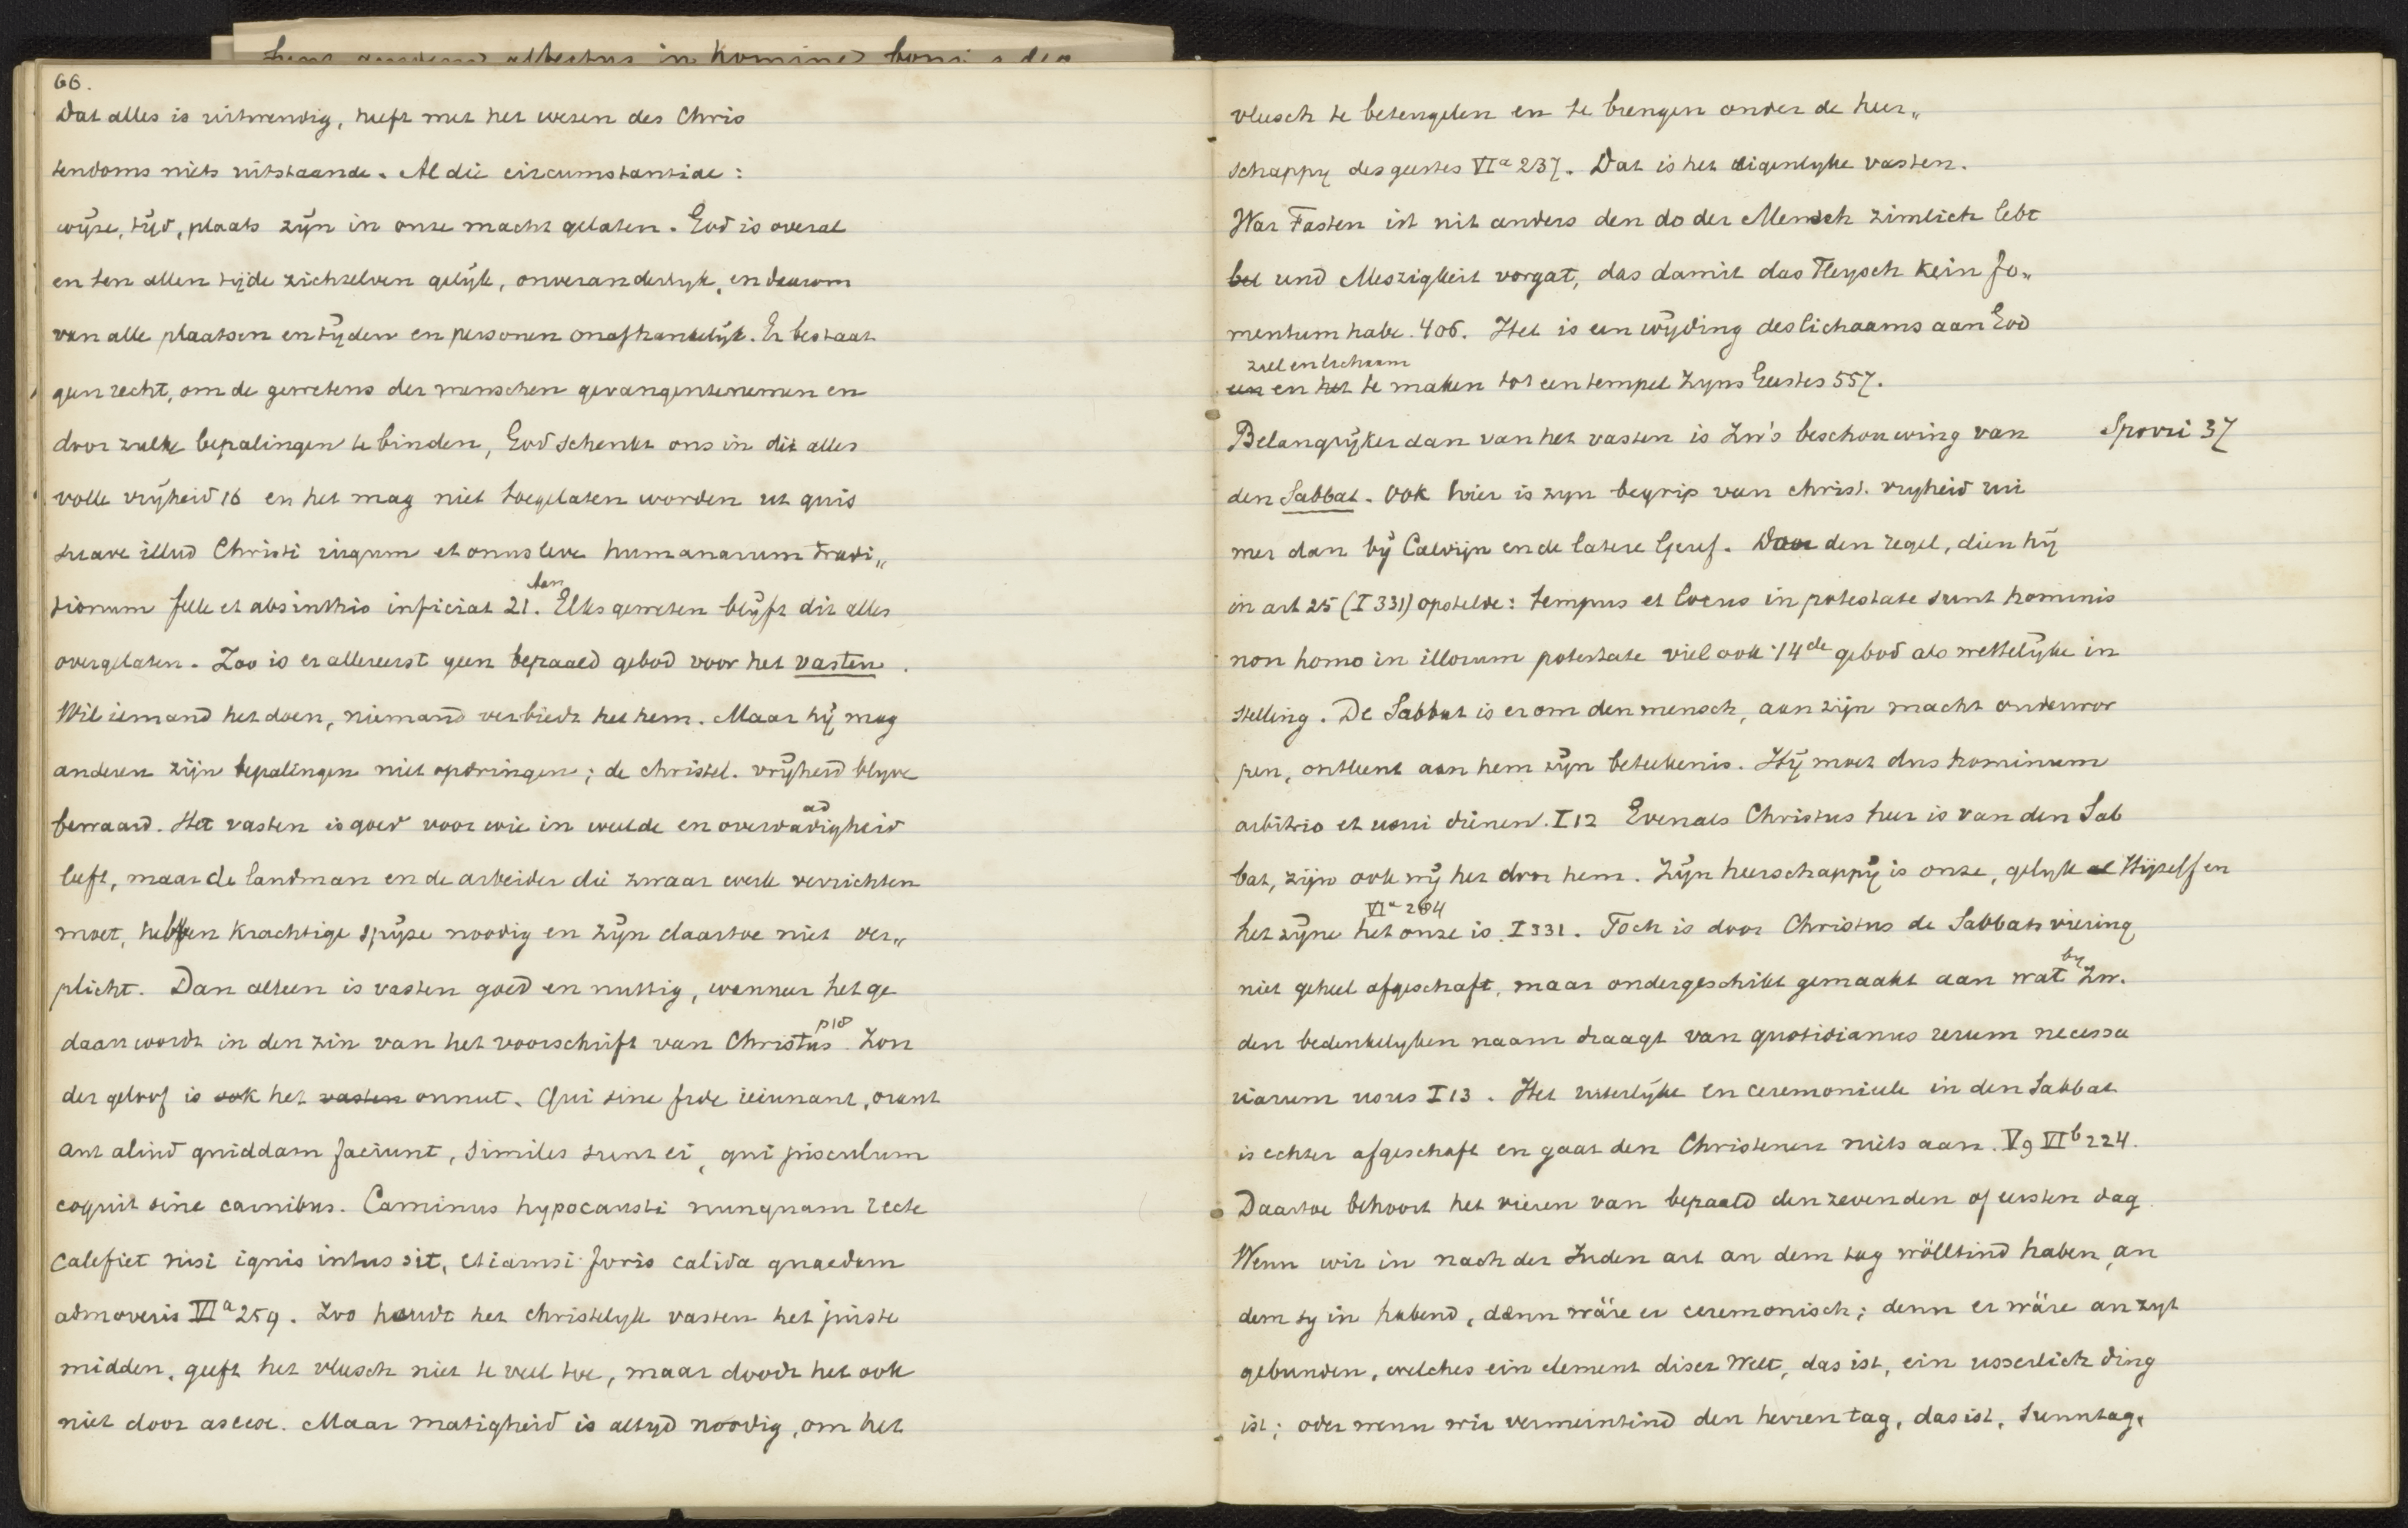 66.
Dat alles is uitwendig, heeft met het wezen des Chris
tendoms niets uitstaande. Al die circumstantiae:
wijze, tijd, plaats zijn in onze macht gelaten. God is overal
en ten allen tijde zichzelven gelijk, onveranderlyk, en daarom
van alle plaatsen en tijden en personen onafhankelijk. Er bestaat
geen recht, om de gewetens der menschen gevangentenemen en
door zulke bepalingen te binden, God schenkt ons in dit alles
volle vrijheid 16 en het mag niet toegelaten worden ut quis
suave illud Christi iugum et onus leve humanarum tradi„
tionum felle et absinthio inficiat 21. Elks geweten blijft dit alles
overgelaten. Zoo is er allereerst geen bepaald gebod voor het vasten.
Wil iemand het doen, niemand verbiedt het hem. Maar hij mag
anderen zijn bepalingen niet opdringen; de christel. vrijheid blyve
bewaard. Het vasten is goed voor wie in weelde en overdadigheid
ad
leeft, maar de landman en de arbeider die zwaar werk verrichten
moet, hebben krachtige spijze noodig en zijn daartoe niet ver„
plicht. Dan alleen is vasten goed en nuttig, wanneer het ge
daan wordt in den zin van het voorschrift van Christus p18. Zon
der geloof is ook het vasten onnut. Qui sine fide ieiunant, orant
aut aliud quiddam faciunt, similes sunt ei, qui pisculum
coquit sine carnibus. Caminus hypocausti nunquam recte
calefiet nisi ignis intus sit, etiamsi foris calida quaedam
admoveris VIa 259. Zoo houdt het christelyk vasten het juiste
midden, geeft het vleesch niet te veel toe, maar doodt het ook
niet door ascese. Maar matigheid is altyd noodig, om het
vleesch te beteugelen en te brengen onder de heer„
schappy des geestes VIa 237. Dat is het eigenlyke vasten.
War Fasten ist nit anders den do der Mensch zimlich lebt
bel und Meszigkeit vorgat, das damit das Fleysch kein fo„
mentum habe. 406. Het is een wijding des lichaams aan God
ziel en lichaam
een en het te maken tot een tempel Zyns Geestes 557.
Belangrijker dan van het vasten is Zw's beschouwing van
Spörri 37
den Sabbat. Ook hier is zyn begrip van christ. vryheid rui
mer dan bij Calvijn en de latere Geref. Door den regel, dien hij
in art 25 (I 331) opstelde: tempus et locus in potestate sunt hominis
non homo in illorum potestate viel ook 't 4de gebod als wettelijke in
stelling. De Sabbat is er om den mensch, aan zijn macht onderwor
pen, ontleent aan hem zijn beteekenis. Hij moet dus hominum
arbitrio et usui dienen. I 12 Evenals Christus heer is van den Sab
bat, zijn ook wij het door hem. Zijn heerschappij is onze, gelyk al Hijzelf en
VIa 264
het zijne het onze is I 331. Toch is door Christus de Sabbatsviering
niet geheel afgeschaft, maar ondergeschikt gemaakt aan wat by Zw.
den bedenkelyken naam draagt van quotidianus rerum necessa
riarum usus I 13. Het uiterlijke en ceremonieele in den Sabbat
is echter afgeschaft en gaat den Christenen niets aan. V 9 VIb 224.
Daartoe behoort het vieren van bepaald den zevenden of eersten dag.
Wenn wir in nach der Juden art an dem tag wölltind haben, an
dem sy in habend, dann wäre er ceremonisch; denn er wäre an zyt
gebunden, welches ein element diser Welt, das ist, ein usserlich ding
ist; oder wenn wir vermeintind den herren tag, das ist, sunntag,